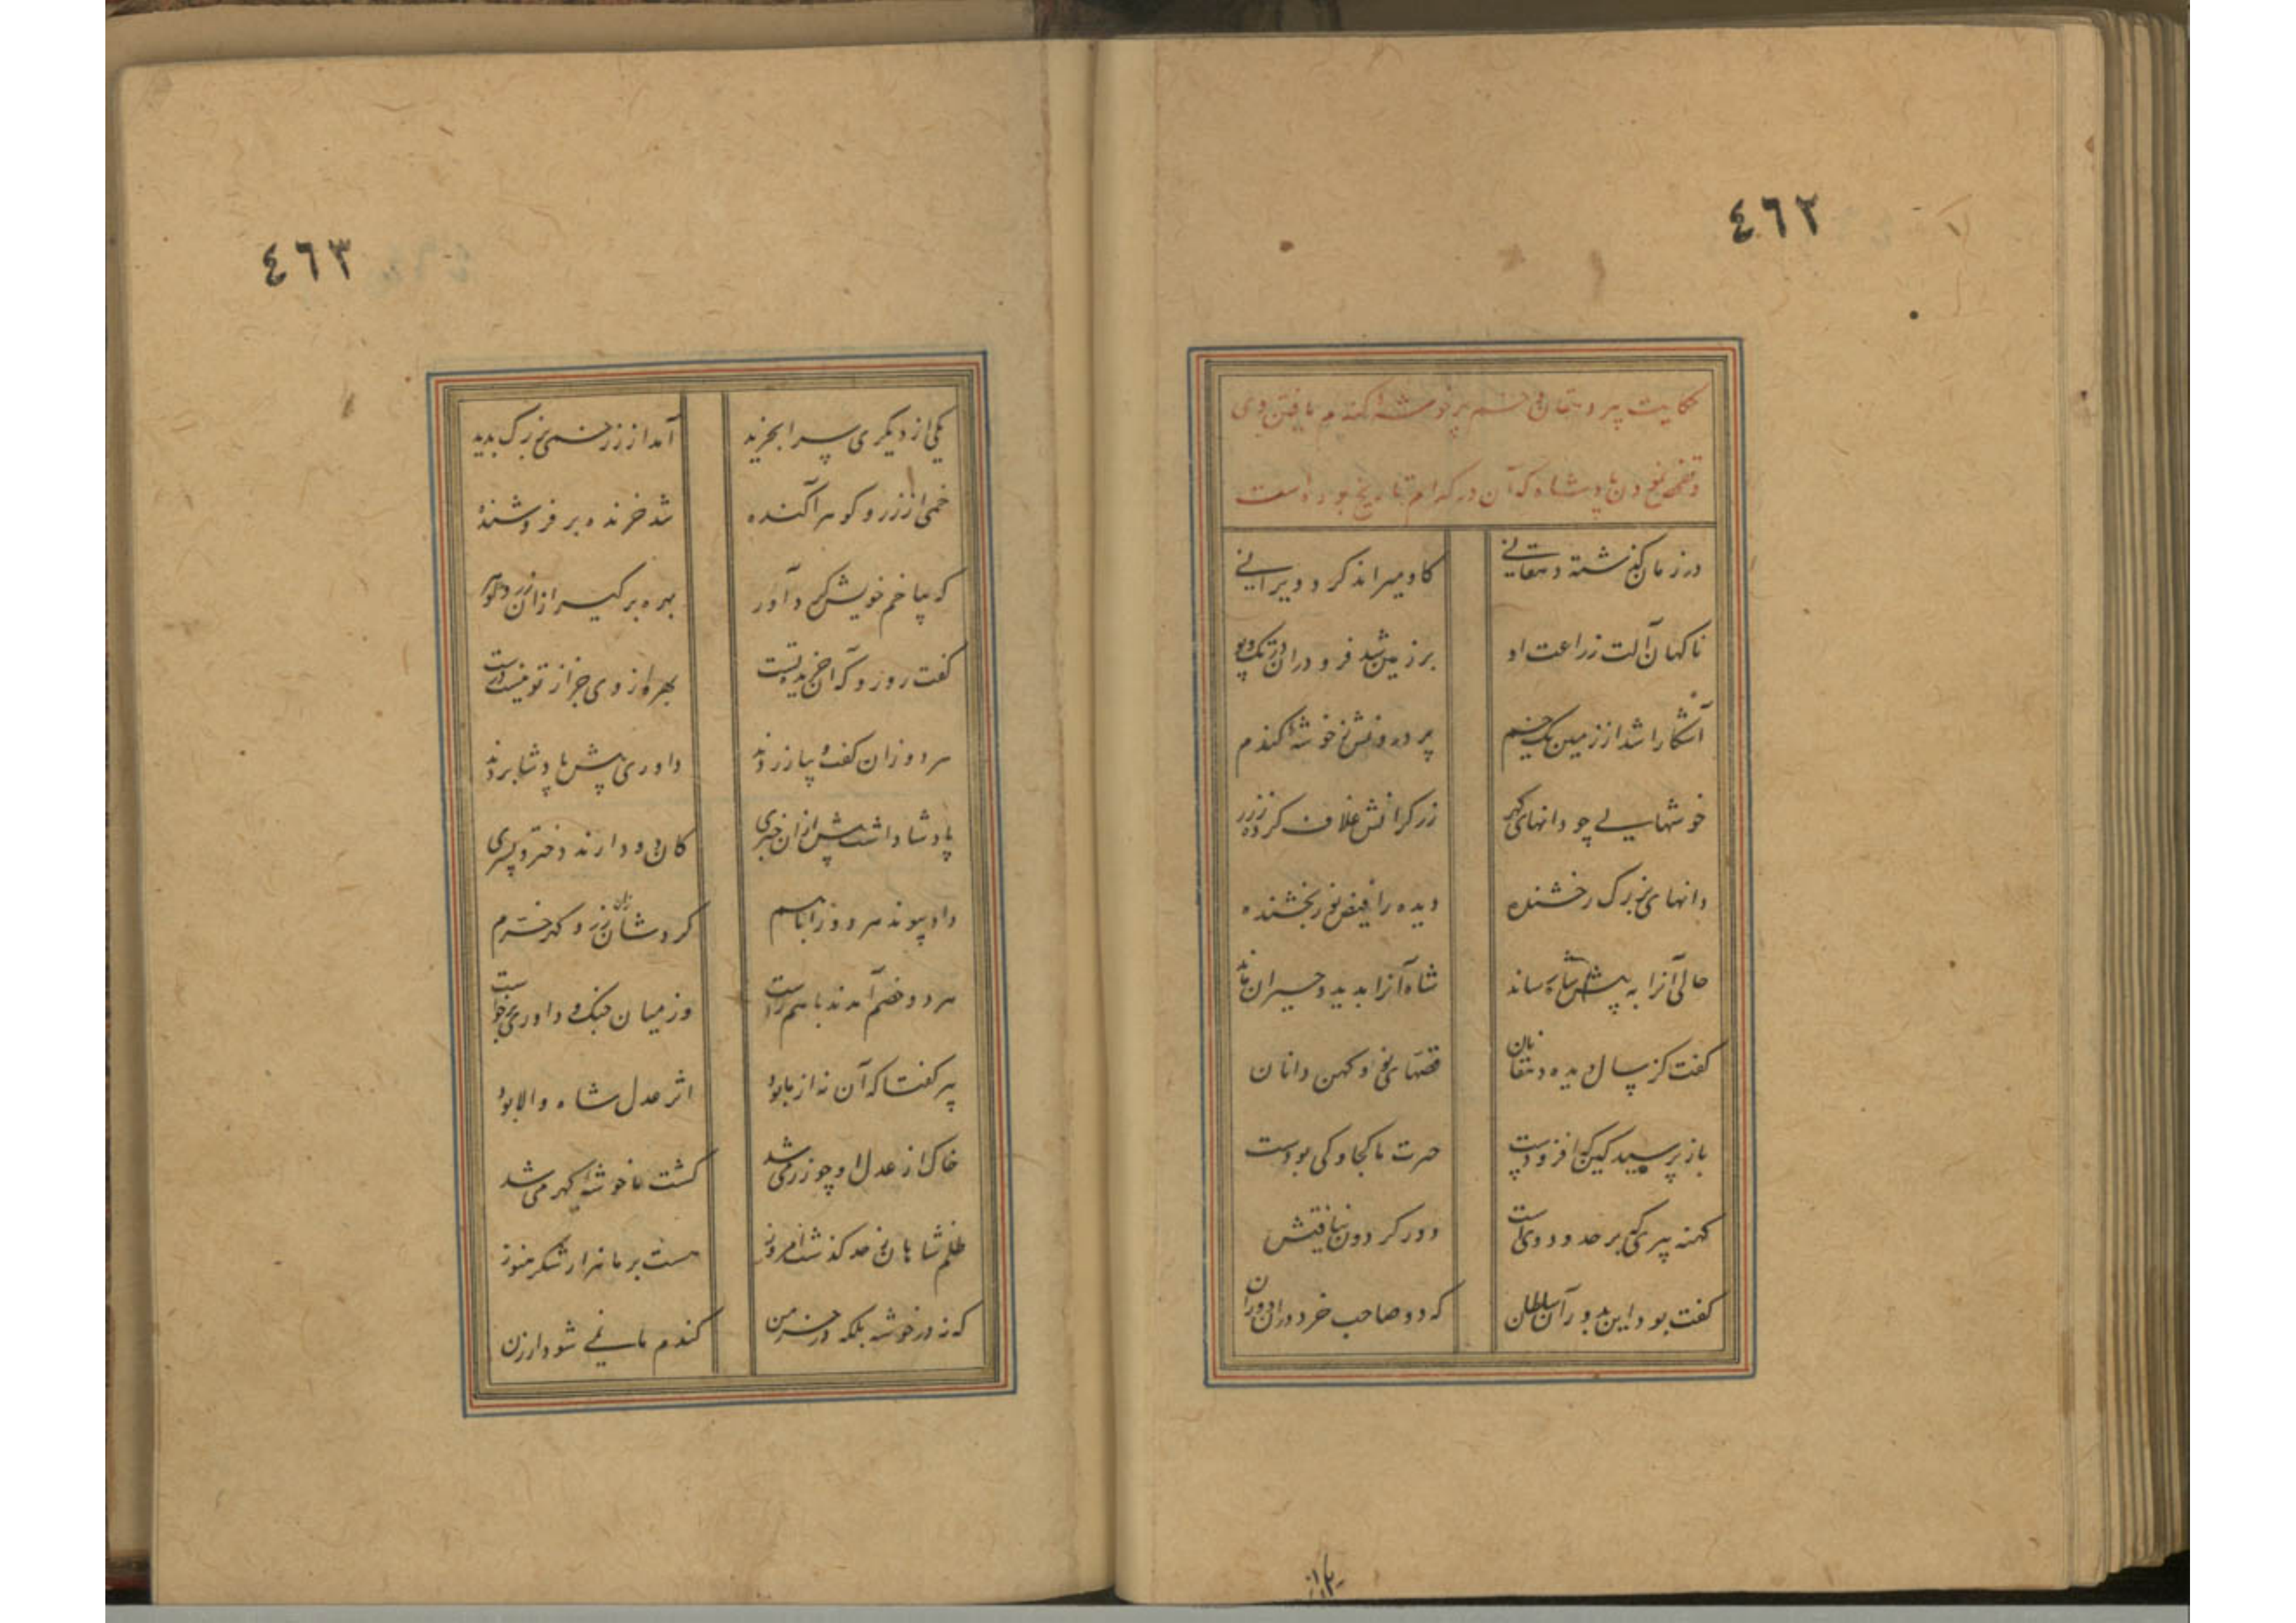 ٤٦٢
حکایت پیر دهقان و خم پر خوشهٔ گندم یافتن وی
و تفحص نمودن پادشاه که آن در کدام تاریخ بوده است
در زمان گذشته دهقانی گاو میراند گرد ویرانی
ناگهان آلت زراعت او بر زمین شد فرو در آن تک و پو
آشکارا شد از زمین یک خم پر درونش ز خوشهٔ گندم
خوشهایی چو دانهای گهر زرگرانش غلاف کرده ز زر
دانهای بزرگ رخشنده دیده را فیض نور بخشنده
حالی آنرا به پیش شاه رساند شاه آنرا بدید و حیران ماند
گفت کز سال دیده دهقانان قصهای نو و کهن دانان
باز پرسید کین که افزودست حرث ما کجا و کی بودست
کهنه پیری که بر حدود وی است دور گردون نیافتش
گفت بود این بدور آن سلطان که دو صاحب خرد در آن دوران
٤٦٣
یکی از دیگری سرا بخرید آمد از زر خمی بزرگ پدید
خمی از زر و گوهر آکنده شد خرنده بر فروشنده
که بیا خم خویش گرد آور بهره برگیر از آن زر و گوهر
گفت رو رو که آن خریدهٔ تست بهره از وی جز از تو نیست درست
هر دو زان گفته پا زدند داوری پیش پادشا بردند
پادشا داشت پیش از آن خبری کان دو دارند دختر و پسری
داد پیوند هر دو را با هم کردشان زان زر و گهر خرم
هر دو خصم آمدند با هم راست وز میان جنگ و داوری برخاست
پیر گفتا که آن نه از ما بود اثر عدل شاه والا بود
خاک از عدل او چو زر می شد کشت ما خوشهٔ گهر می شد
ظلم شاهان ز حد گذشت امروز هست بر ما هزار شکر هنوز
که نه در خوشه بلکه در خرمن گندم ما نمی شود ارزن